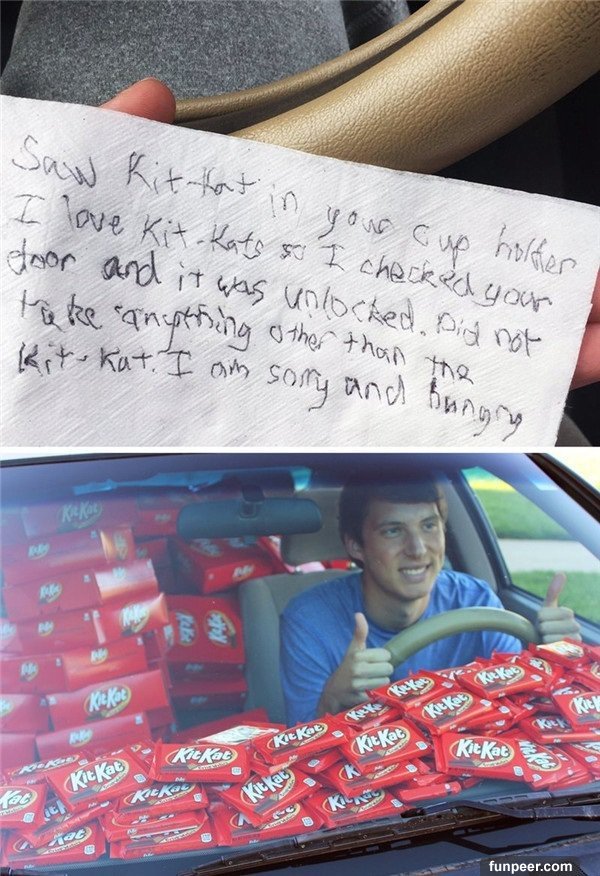 Saw Kit-Kat in your cup holder
I love Kit-Kats so I checked your
door and it was unlocked. Did not
take anything other than the
Kit-Kat. I am sorry and hungry
KitKat
KitKat
KitKat
KitKat
KitKat
KitKat
KitKat
KitKat
KitKat
KitKat
KitKat
KitKat
funpeer.com